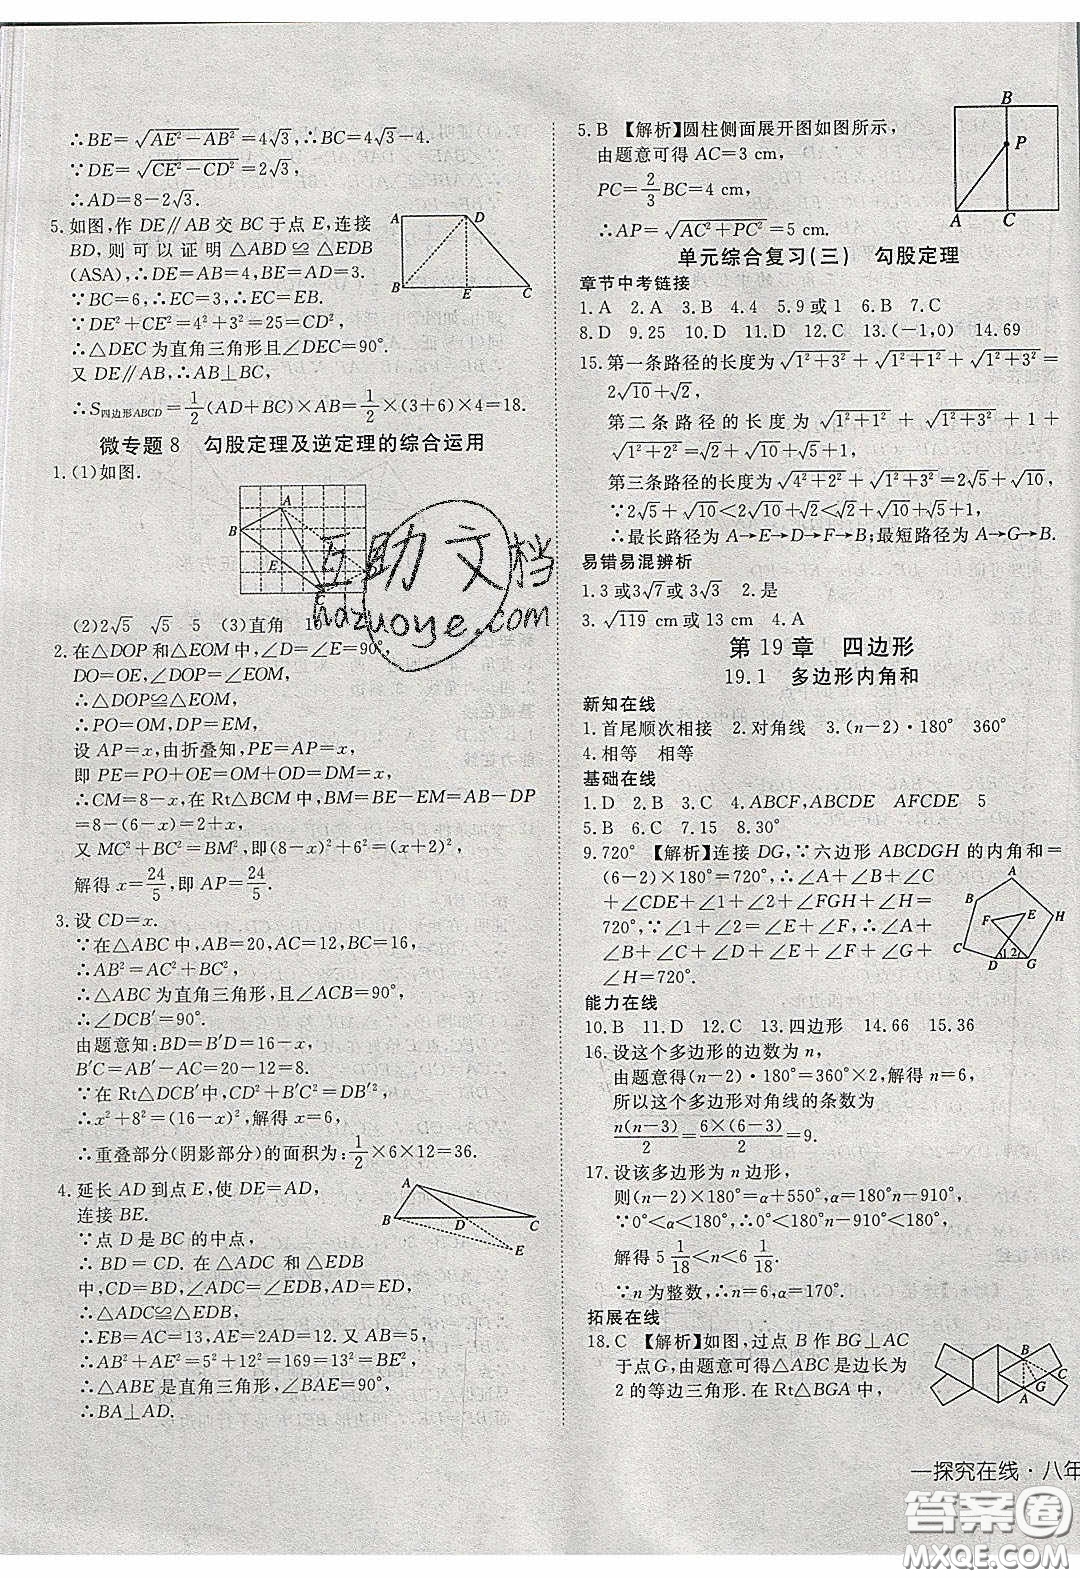 ∴BE=√(AE²-AB²)=4√3,∴BC=4√3-4.
∵DE=√(CE²-CD²)=2√3,
∴AD=8-2√3.
5.如图,作 DE∥AB 交 BC 于点 E,连接
BD,则可以证明 △ABD≌△EDB
(ASA),∴DE=AB=4,AD=BE=3.
∵BC=6,∴EC=BC-EB=3.
∵DE²+CE²=4²+3²=25=CD²,
∴△DEC 为直角三角形且∠DEC=90°.
又 DE∥AB,∴AB⊥BC,
∴S四边形ABCD=1/2(AD+BC)×AB=1/2×(3+6)×4=18.
A
D
B
E
C
微专题 8 勾股定理及逆定理的综合运用
1.(1)如图.
A
B
E
C
(2)2√5 √5 5 (3)直角 10
2.在△DOP 和△EOM 中,∠D=∠E=90°,
DO=OE,∠DOP=∠EOM,
∴△DOP≌△EOM,
∴PO=OM,DP=EM,
设 AP=x,由折叠知,PE=AP=x,
即 PE=PO+OE=OM+OD=DM=x,
∴CM=8-x,在 Rt△BCM 中,BM=BE-EM=AB-DP
=8-(6-x)=2+x,
又 MC²+BC²=BM²,即(8-x)²+6²=(x+2)²,
解得 x=24/5,即 AP=24/5.
3.设 CD=x.
∵在△ABC 中,AB=20,AC=12,BC=16,
∴AB²=AC²+BC²,
∴△ABC 为直角三角形,且∠ACB=90°,
∴∠DCB′=90°.
由题意知:BD=B′D=16-x,
B′C=AB′-AC=20-12=8.
∵在 Rt△DCB′中,CD²+B′C²=DB′²,
∴x²+8²=(16-x)²,解得 x=6.
∴重叠部分(阴影部分)的面积为:1/2×6×12=36.
4.延长 AD 到点 E,使 DE=AD,
连接 BE.
∵点 D 是 BC 的中点,
∴BD=CD. 在△ADC 和△EDB
中,CD=BD,∠ADC=∠EDB,AD=ED,
∴△ADC≌△EDB,
∴EB=AC=13,AE=2AD=12.又 AB=5,
∴AB²+AE²=5²+12²=169=13²=BE²,
∴△ABE 是直角三角形,∠BAE=90°,
∴BA⊥AD.
A
B
D
C
E
5.B 【解析】圆柱侧面展开图如图所示,
由题意可得 AC=3 cm,
PC=2/3 BC=4 cm,
∴AP=√(AC²+PC²)=5 cm.
B
P
A
C
单元综合复习(三) 勾股定理
章节中考链接
1.A 2.A 3.B 4.4 5.9 或 1 6.B 7.C
8.D 9.25 10.D 11.D 12.C 13.(-1,0) 14.69
15.第一条路径的长度为√(1²+3²)+√(1²+1²)+√(1²+3²)=
2√10+√2,
第二条路径的长度为√(1²+3²)+√(1²+1²)+1
+√(1²+2²)=√10+√2+1+√5,
第三条路径的长度为√(4²+2²)+√(1²+3²)=2√5+√10,
∵2√5+√10<2√10+√2<√2+√10+√5+1,
∴最长路径为 A→E→D→F→B;最短路径为 A→G→B.
易错易混辨析
1.3 或3√7或3√3 2.是
3.√119 cm 或 13 cm 4.A
第 19 章 四边形
19.1 多边形内角和
新知在线
1.首尾顺次相接 2.对角线 3.(n-2)·180° 360°
4.相等 相等
基础在线
1.D 2.B 3.C 4.ABCF,ABCDE AFCDE 5
5.B 6.C 7.15 8.30°
9.720° 【解析】连接 DG,∵六边形 ABCDGH 的内角和=
(6-2)×180°=720°,∴∠A+∠B+∠C
+∠CDE+∠1+∠2+∠FGH+∠H=
720°,∵∠1+∠2=∠E+∠F,∴∠A
+∠B+∠C+∠D+∠E+∠F+∠G
+∠H=720°.
A
B
F
E
H
C
D
12
G
能力在线
10.B 11.D 12.C 13.四边形 14.66 15.36
16.设这个多边形的边数为 n,
由题意得(n-2)·180°=360°×2,解得 n=6,
所以这个多边形对角线的条数为
n(n-3)/2=6×(6-3)/2=9.
17.设该多边形为 n 边形,
则(n-2)×180°=α+550°,α=180°n-910°,
∵0°<α<180°,∴0°<180°n-910°<180°,
解得 5 1/18<n<6 1/18.
∵n 为整数,∴n=6,α=170°.
拓展在线
18.C 【解析】如图,过点 B 作 BG⊥AC
于点 G,由题意可得△ABC 是边长为
2 的等边三角形.在 Rt△BGA 中,
B
C
G
A
—探究在线·八年
互助文档
hazuoye.com
答案圈
MXQE.COM